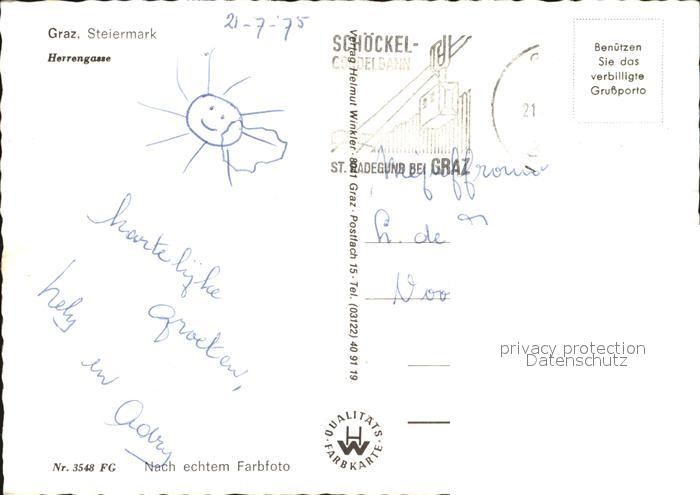 Graz, Steiermark
Herrengasse
21-7-'75
hartelijke
groeten,
hely en
Adry
Nr. 3548 FG
Nach echtem Farbfoto
Verlag Helmut Winkler · 8041 Graz · Postfach 15 · Tel. (03122) 40 91 19
QUALITÄTS
HW
FARBKARTE
SCHÖCKEL-
GONDELBAHN
ST. RADEGUND BEI GRAZ
21
Benützen
Sie das
verbilligte
Grußporto
Mejuffrouw
de
Voo
privacy protection
Datenschutz